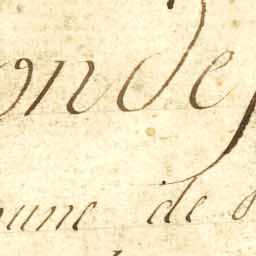 onde
mune de